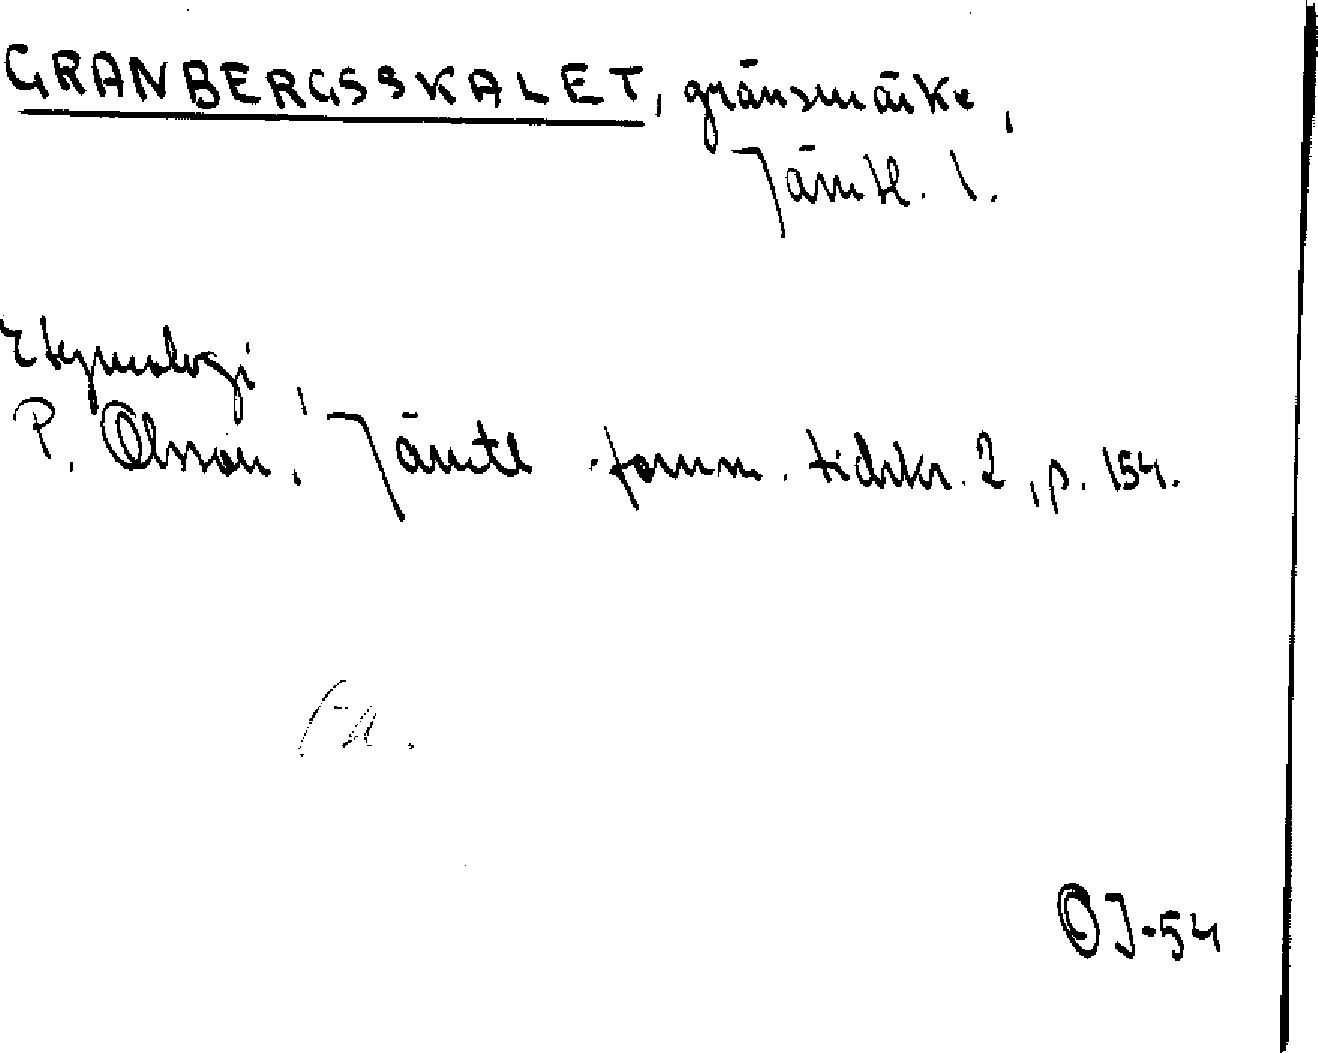 GRANBERGSSKALET, gränsmärke,
Jämtl. l.
Etymologi
P. Olsson, Jämtl. fornm. tidskr. 2, p. 154.
OJ-54